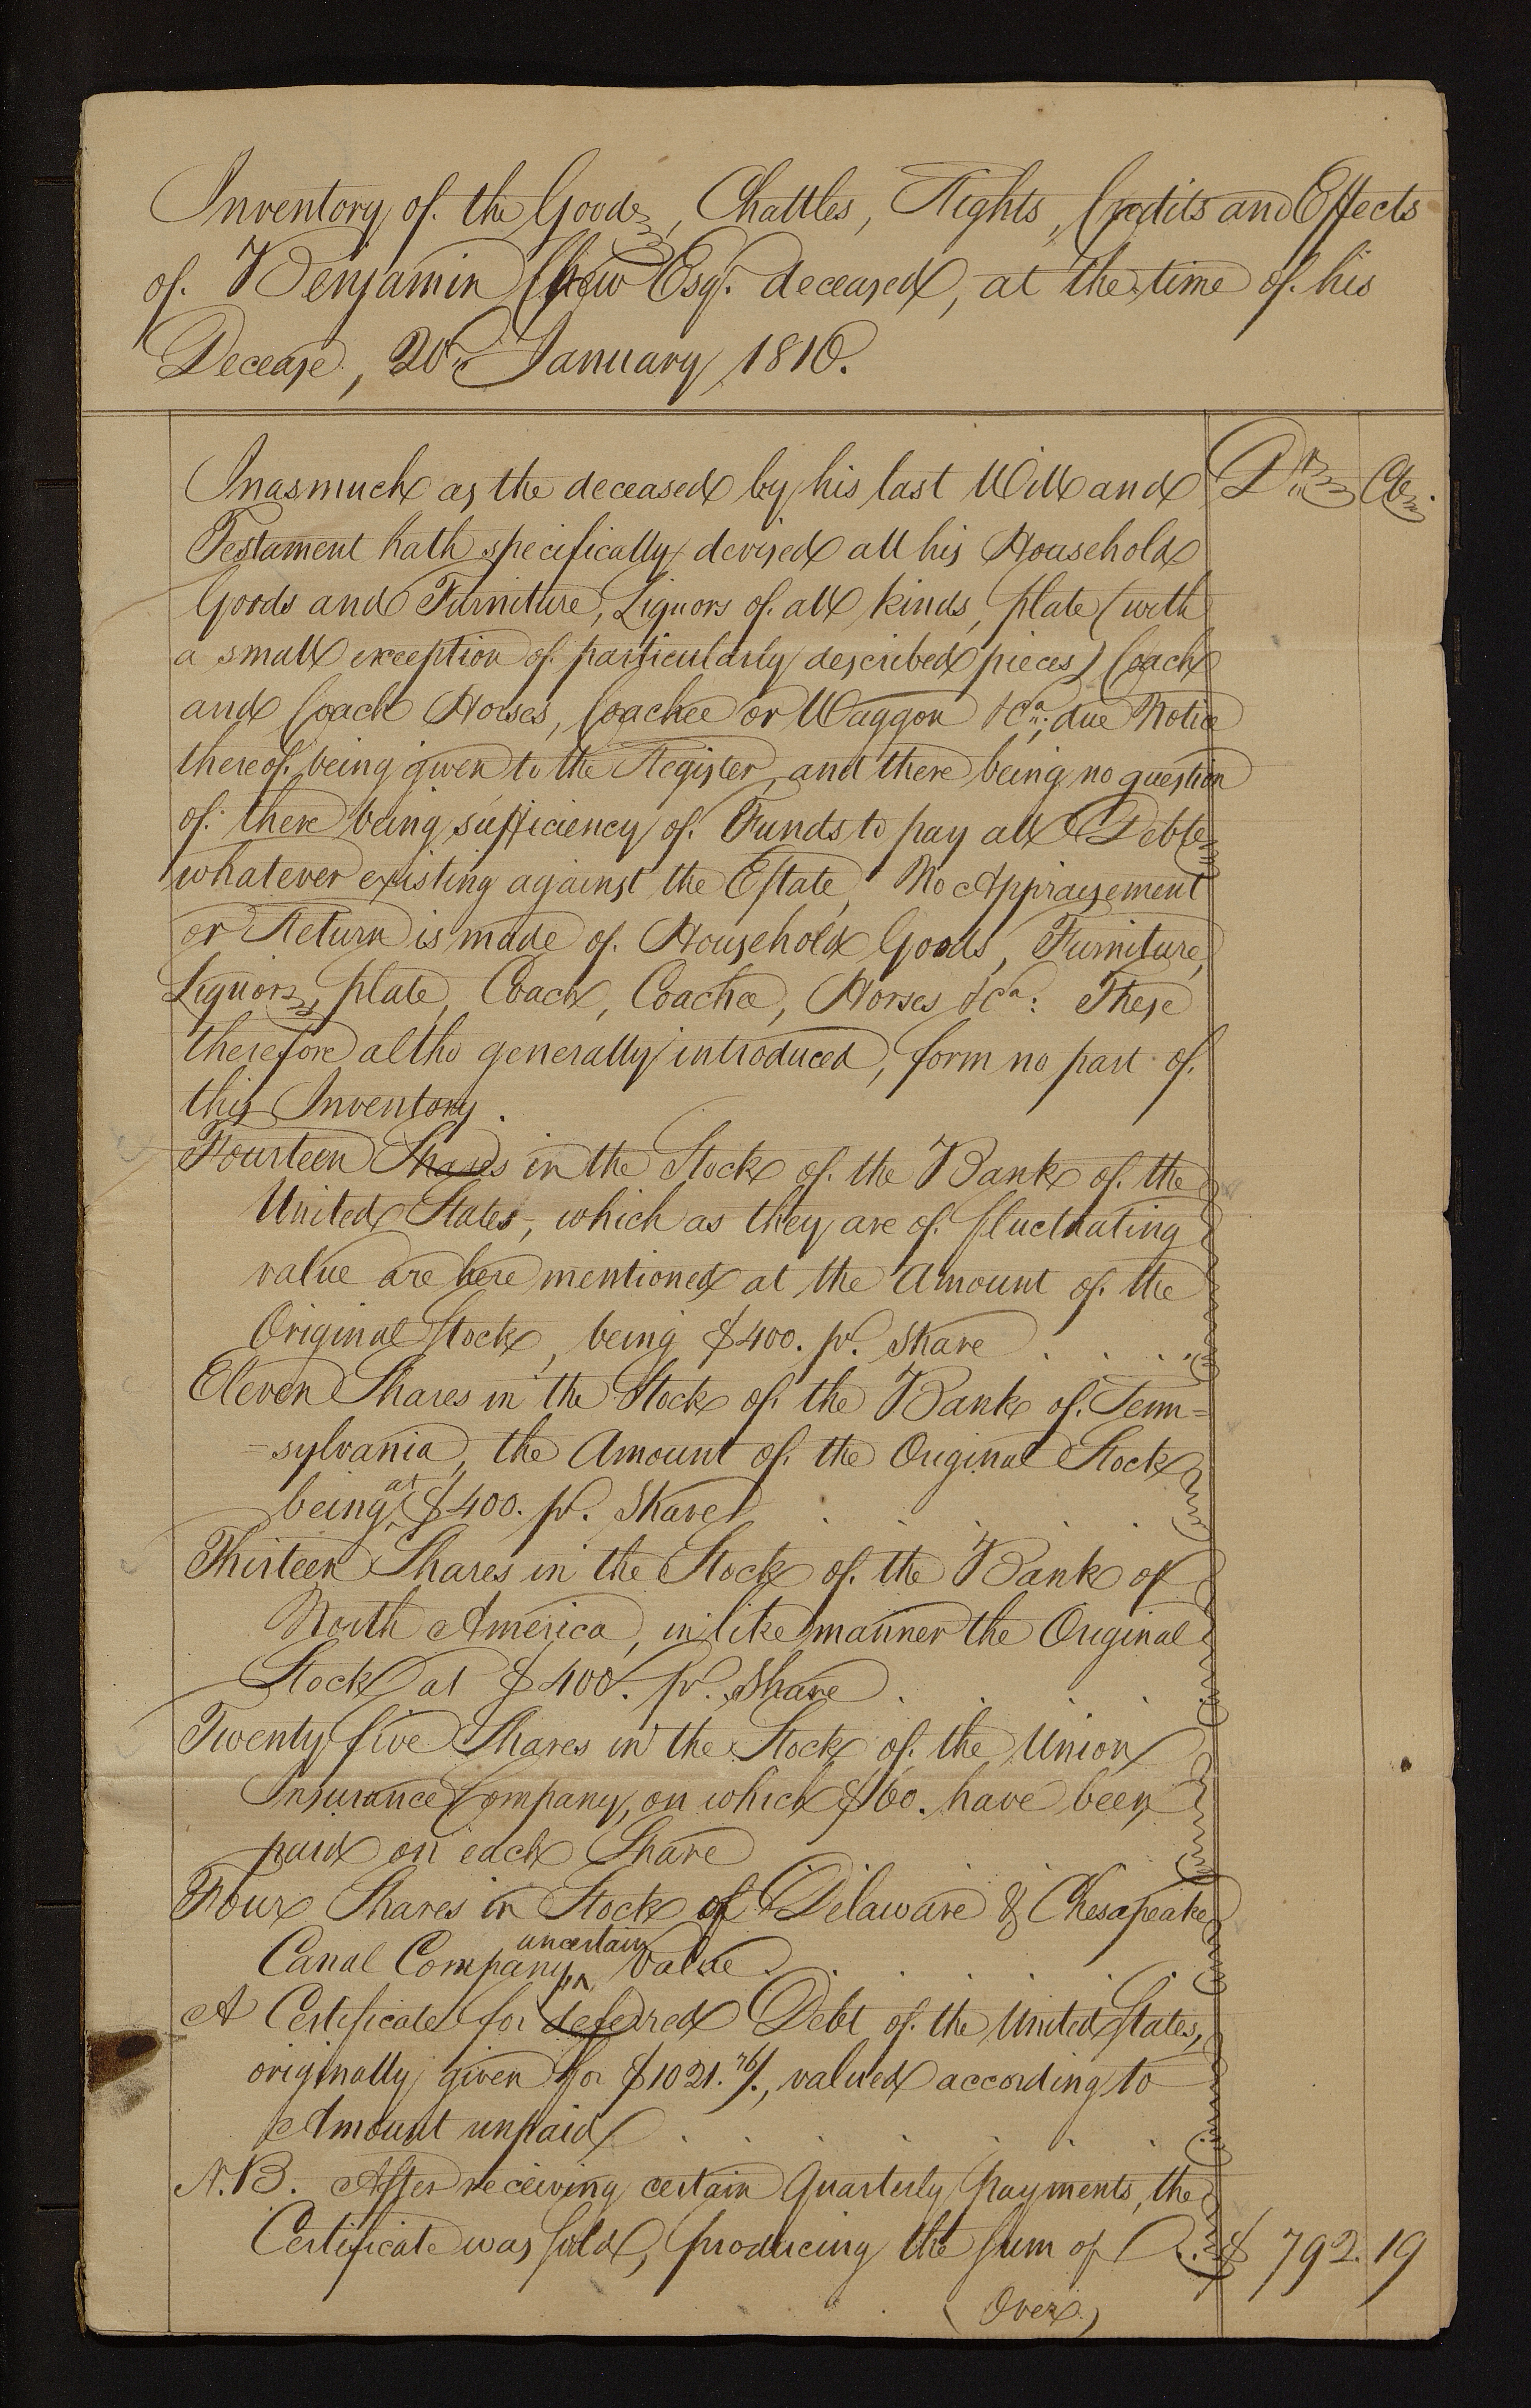 Inventory of the Goods, Chattles, Rights, Credits and Effects
of Benjamin Chew Esqr. deceased, at the time of his
Decease, 20th January 1810.
Inasmuch as the deceased by his last Will and
Drs Cts.
Testament hath specifically devised all his Household
Goods and Furniture, Liquors of all kinds, plate (with
a small exception of particularly described pieces) Coach
and Coach Horses, Coachee or Waggon &ca; due Notice
thereof being given to the Register, and there being no question
of there being sufficiency of Funds to pay all Debts
whatever existing against the Estate, No Appraisement
or Return is made of Household Goods, Furniture,
Liquors, plate, Coach, Coachee, Horses &ca: These
therefore altho generally introduced, form no part of
this Inventory.
Fourteen Shares in the Stock of the Bank of the
United States, which as they are of fluctuating
value are here mentioned at the Amount of the
Original Stock, being $400. pr. share . . . .
Eleven Shares in the Stock of the Bank of Penn=
=sylvania, the Amount of the Original Stock
being at $400. pr. share . . . .
Thirteen Shares in the Stock of the Bank of
North America, in like manner the Original
Stock at $400. pr. share . . . .
Twenty five Shares in the Stock of the Union
Insurance Company, on which $60. have been
paid on each Share
Four Shares in Stock of Delaware & Chesapeake
Canal Company, uncertain Value . . . .
A Certificate for deferred Debt of the United States,
originally given for $1021.76/., valued according to
Amount unpaid . . . . .
N.B. After receiving certain Quarterly Payments, the
Certificate was sold, producing the sum of . . $ 792. 19
(Over)